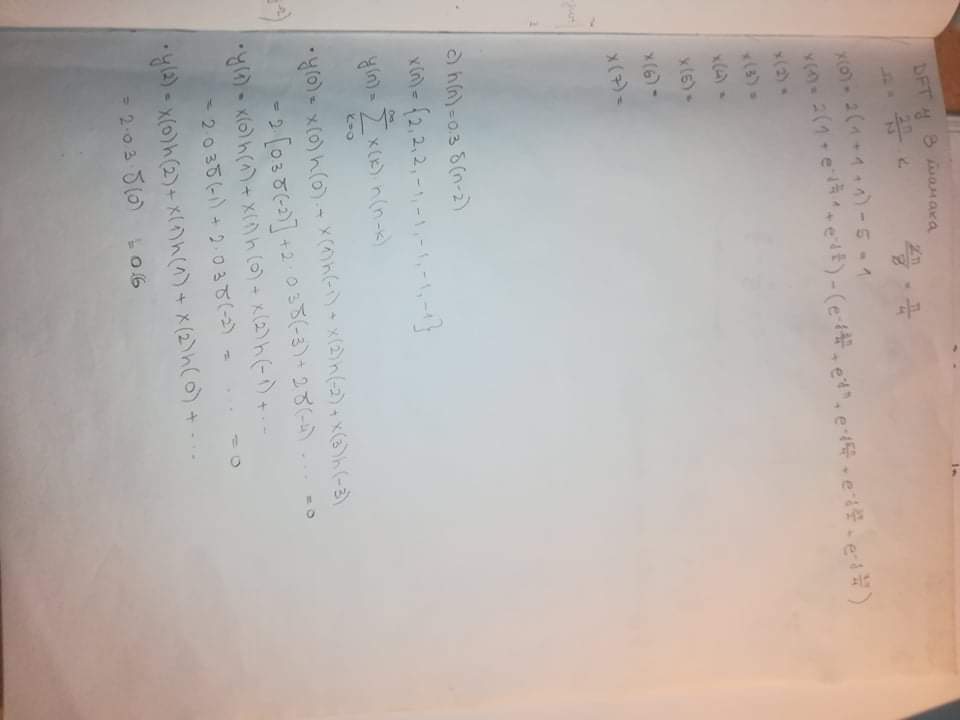 DFT у 8 тачака
Ω = 2π/N · k    2π/8 = π/4
X(0) = 2(1+1+1) - 5 = 1
X(1) = 2(1 + e^-j π/4 ·1 + e^-j π/2) - (e^-j 3π/4 + e^-jπ + e^-j 5π/4 + e^-j 3π/2 + e^-j 7π/4)
X(2) =
X(3) =
X(4) =
X(5) =
X(6) =
X(7) =
c) h(n) = 0.3 δ(n-2)
x(n) = {2, 2, 2, -1, -1, -1, -1, -1}
y(n) = ∞∑k=0 x(k) h(n-k)
• y(0) = x(0)h(0) + x(1)h(-1) + x(2)h(-2) + x(3)h(-3)
= 2·[0.3 δ(-2)] + 2·0.3 δ(-3) + 2δ(-4) ... = 0
• y(1) = x(0)h(1) + x(1)h(0) + x(2)h(-1) + ...
= 2·0.3 δ(-1) + 2·0.3 δ(-2) = ... = 0
• y(2) = x(0)h(2) + x(1)h(1) + x(2)h(0) + ...
= 2·0.3·δ(0) = 0.6